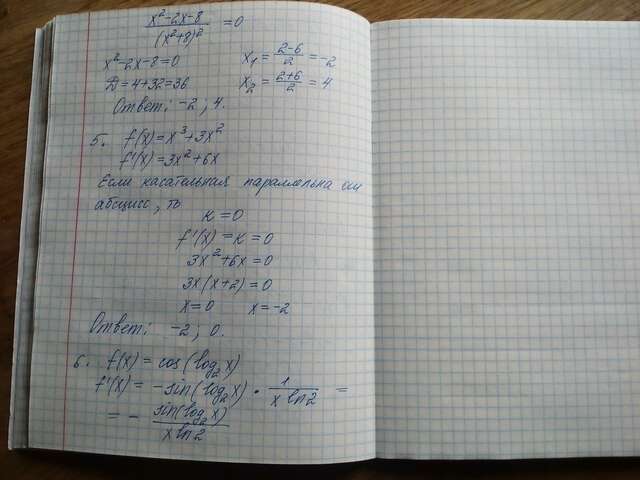 x²-2x-8 / (x²+8)² = 0
x²-2x-8=0 x₁ = 2-6/2 = -2
D=4+32=36 x₂ = 2+6/2 = 4
Ответ: -2; 4.
5. f(x)=x³+3x²
f'(x)=3x²+6x
Если касательная параллельна оси
абсцисс, то
к=0
f'(x)=к=0
3x²+6x=0
3x(x+2)=0
x=0 x=-2
Ответ: -2; 0.
6. f(x) = cos(log₂x)
f'(x) = -sin(log₂x) · 1/x ln2 =
= - sin(log₂x)/x ln2